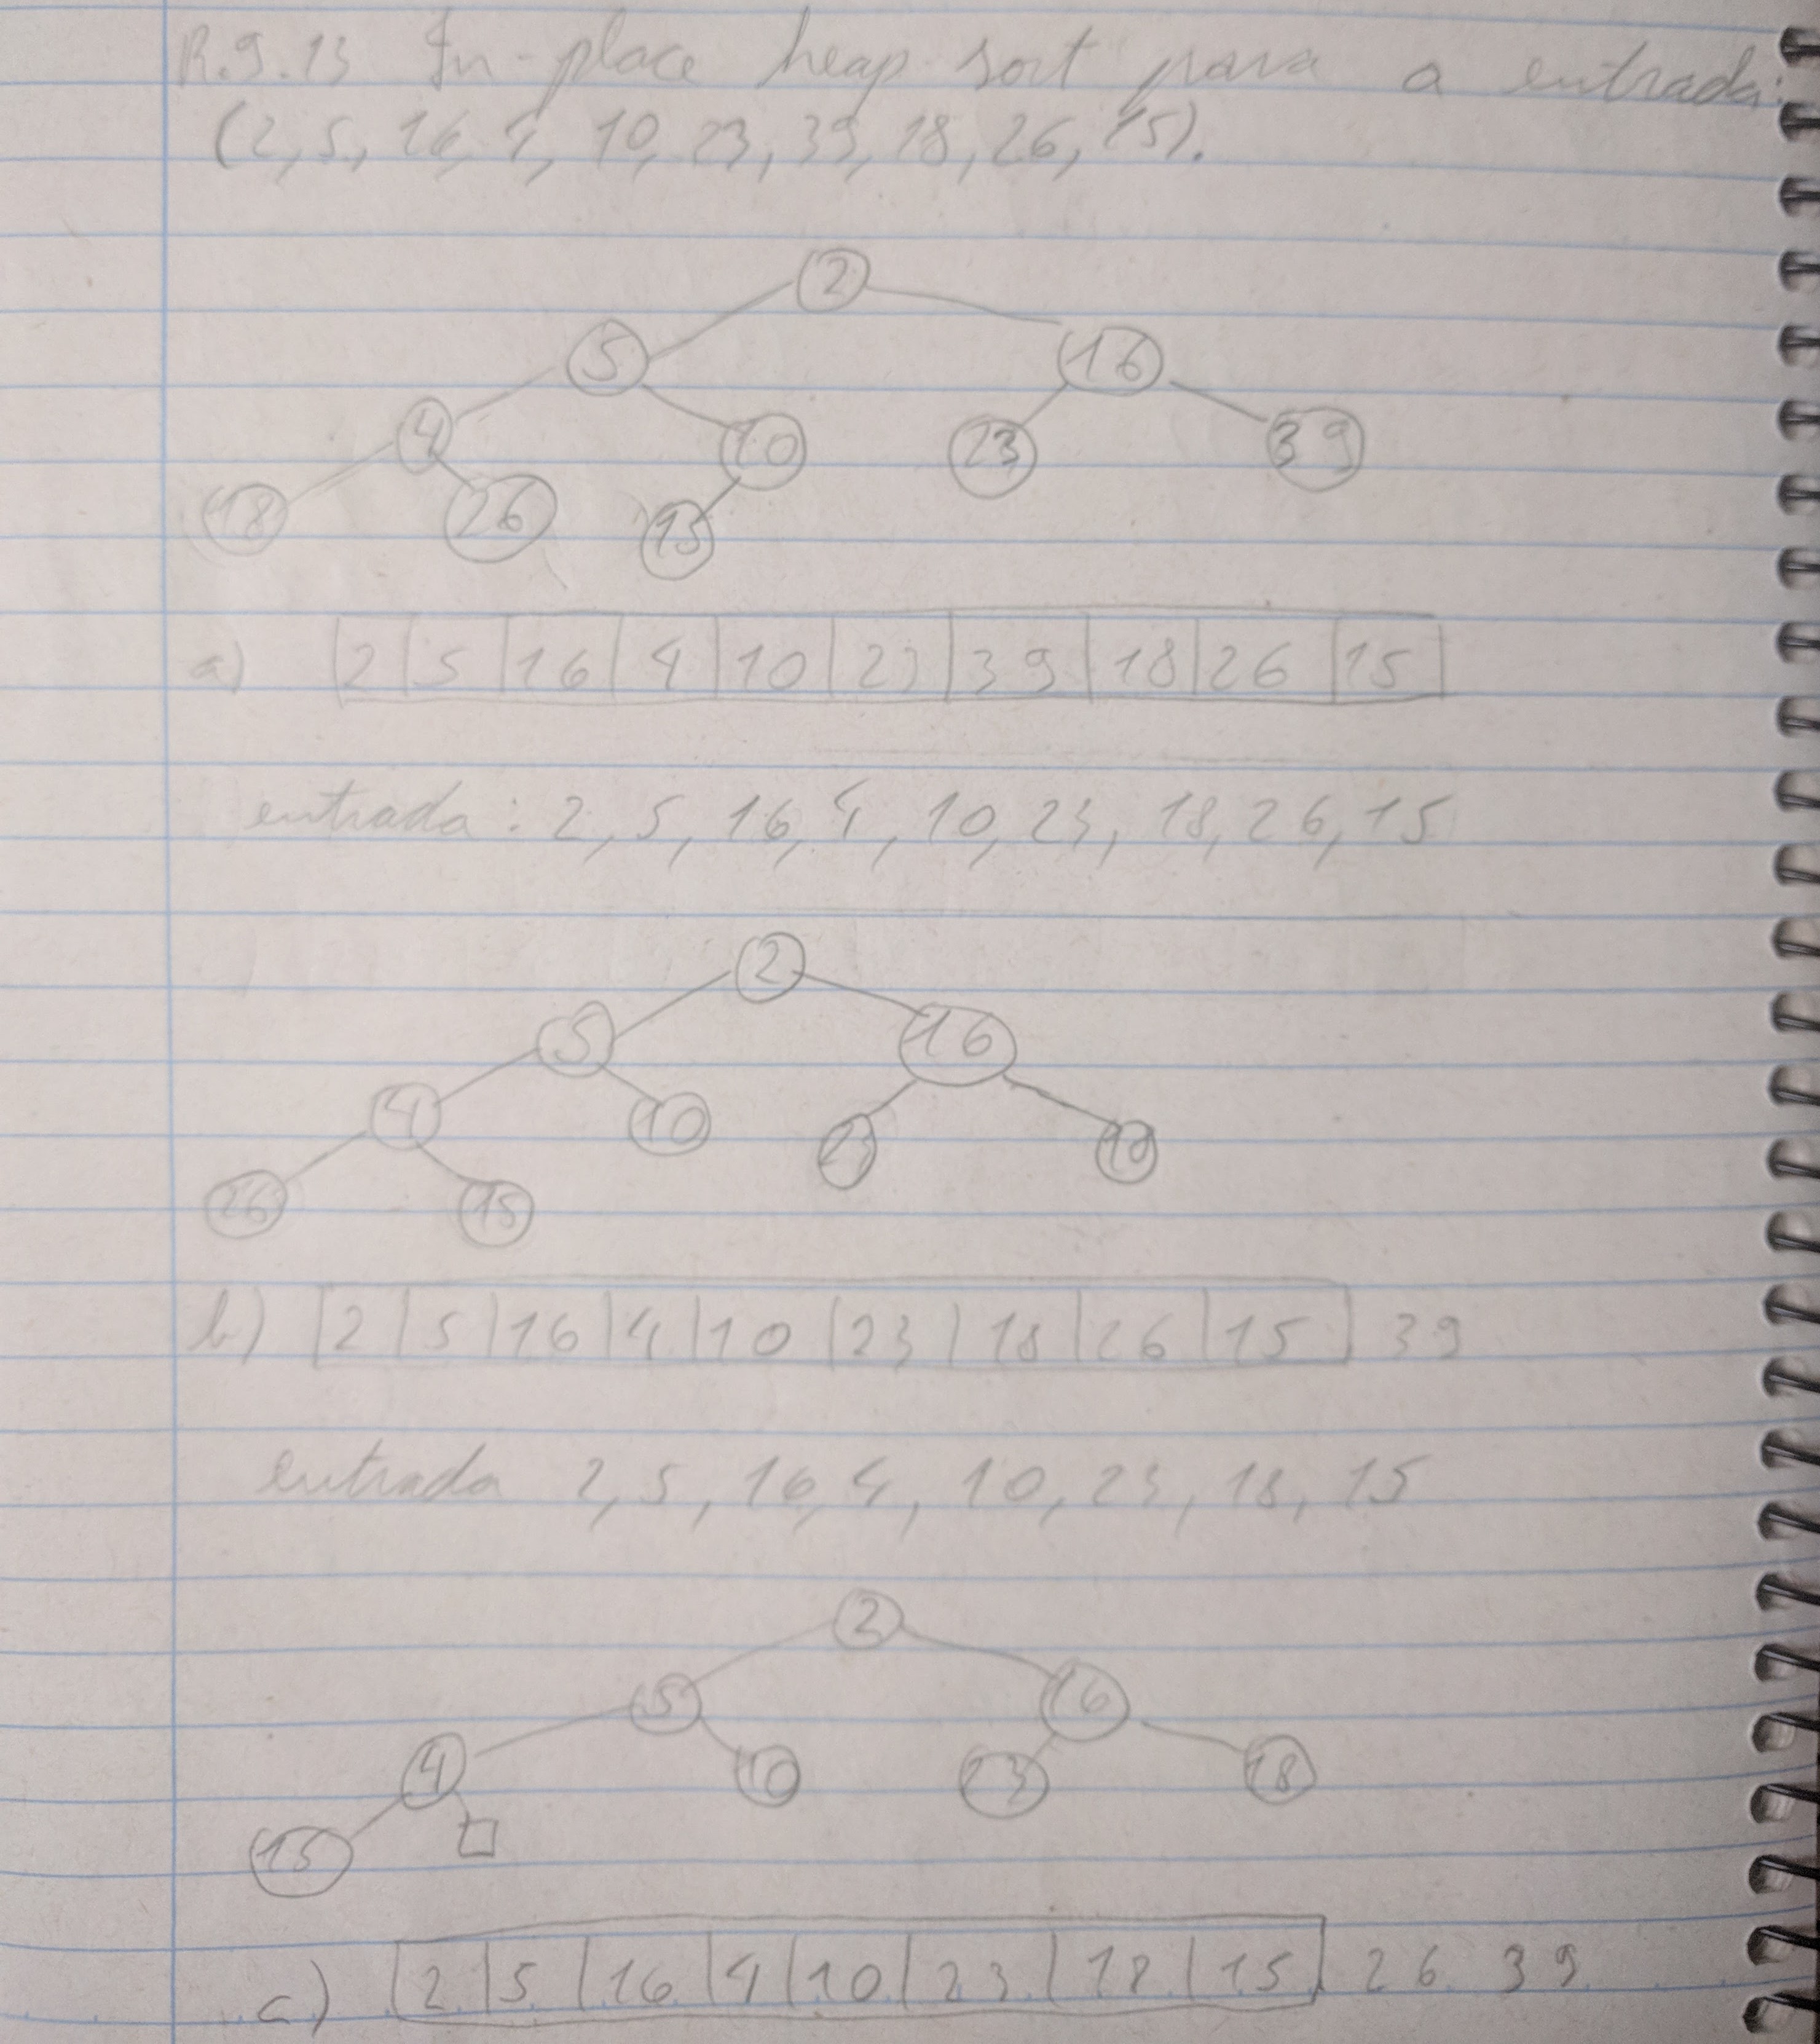 R.9.13 In-place heap-sort para a entrada:
(2, 5, 16, 4, 10, 23, 39, 18, 26, 15).
2
5 16
4 10 23 39
18 26 15
a) 2 5 16 4 10 23 39 18 26 15
entrada: 2, 5, 16, 4, 10, 23, 18, 26, 15
2
5 16
4 10 23 18
26 15
b) 2 5 16 4 10 23 18 26 15 39
entrada 2, 5, 16, 4, 10, 23, 18, 15
2
5 16
4 10 23 18
15
c) 2 5 16 4 10 23 18 15 26 39